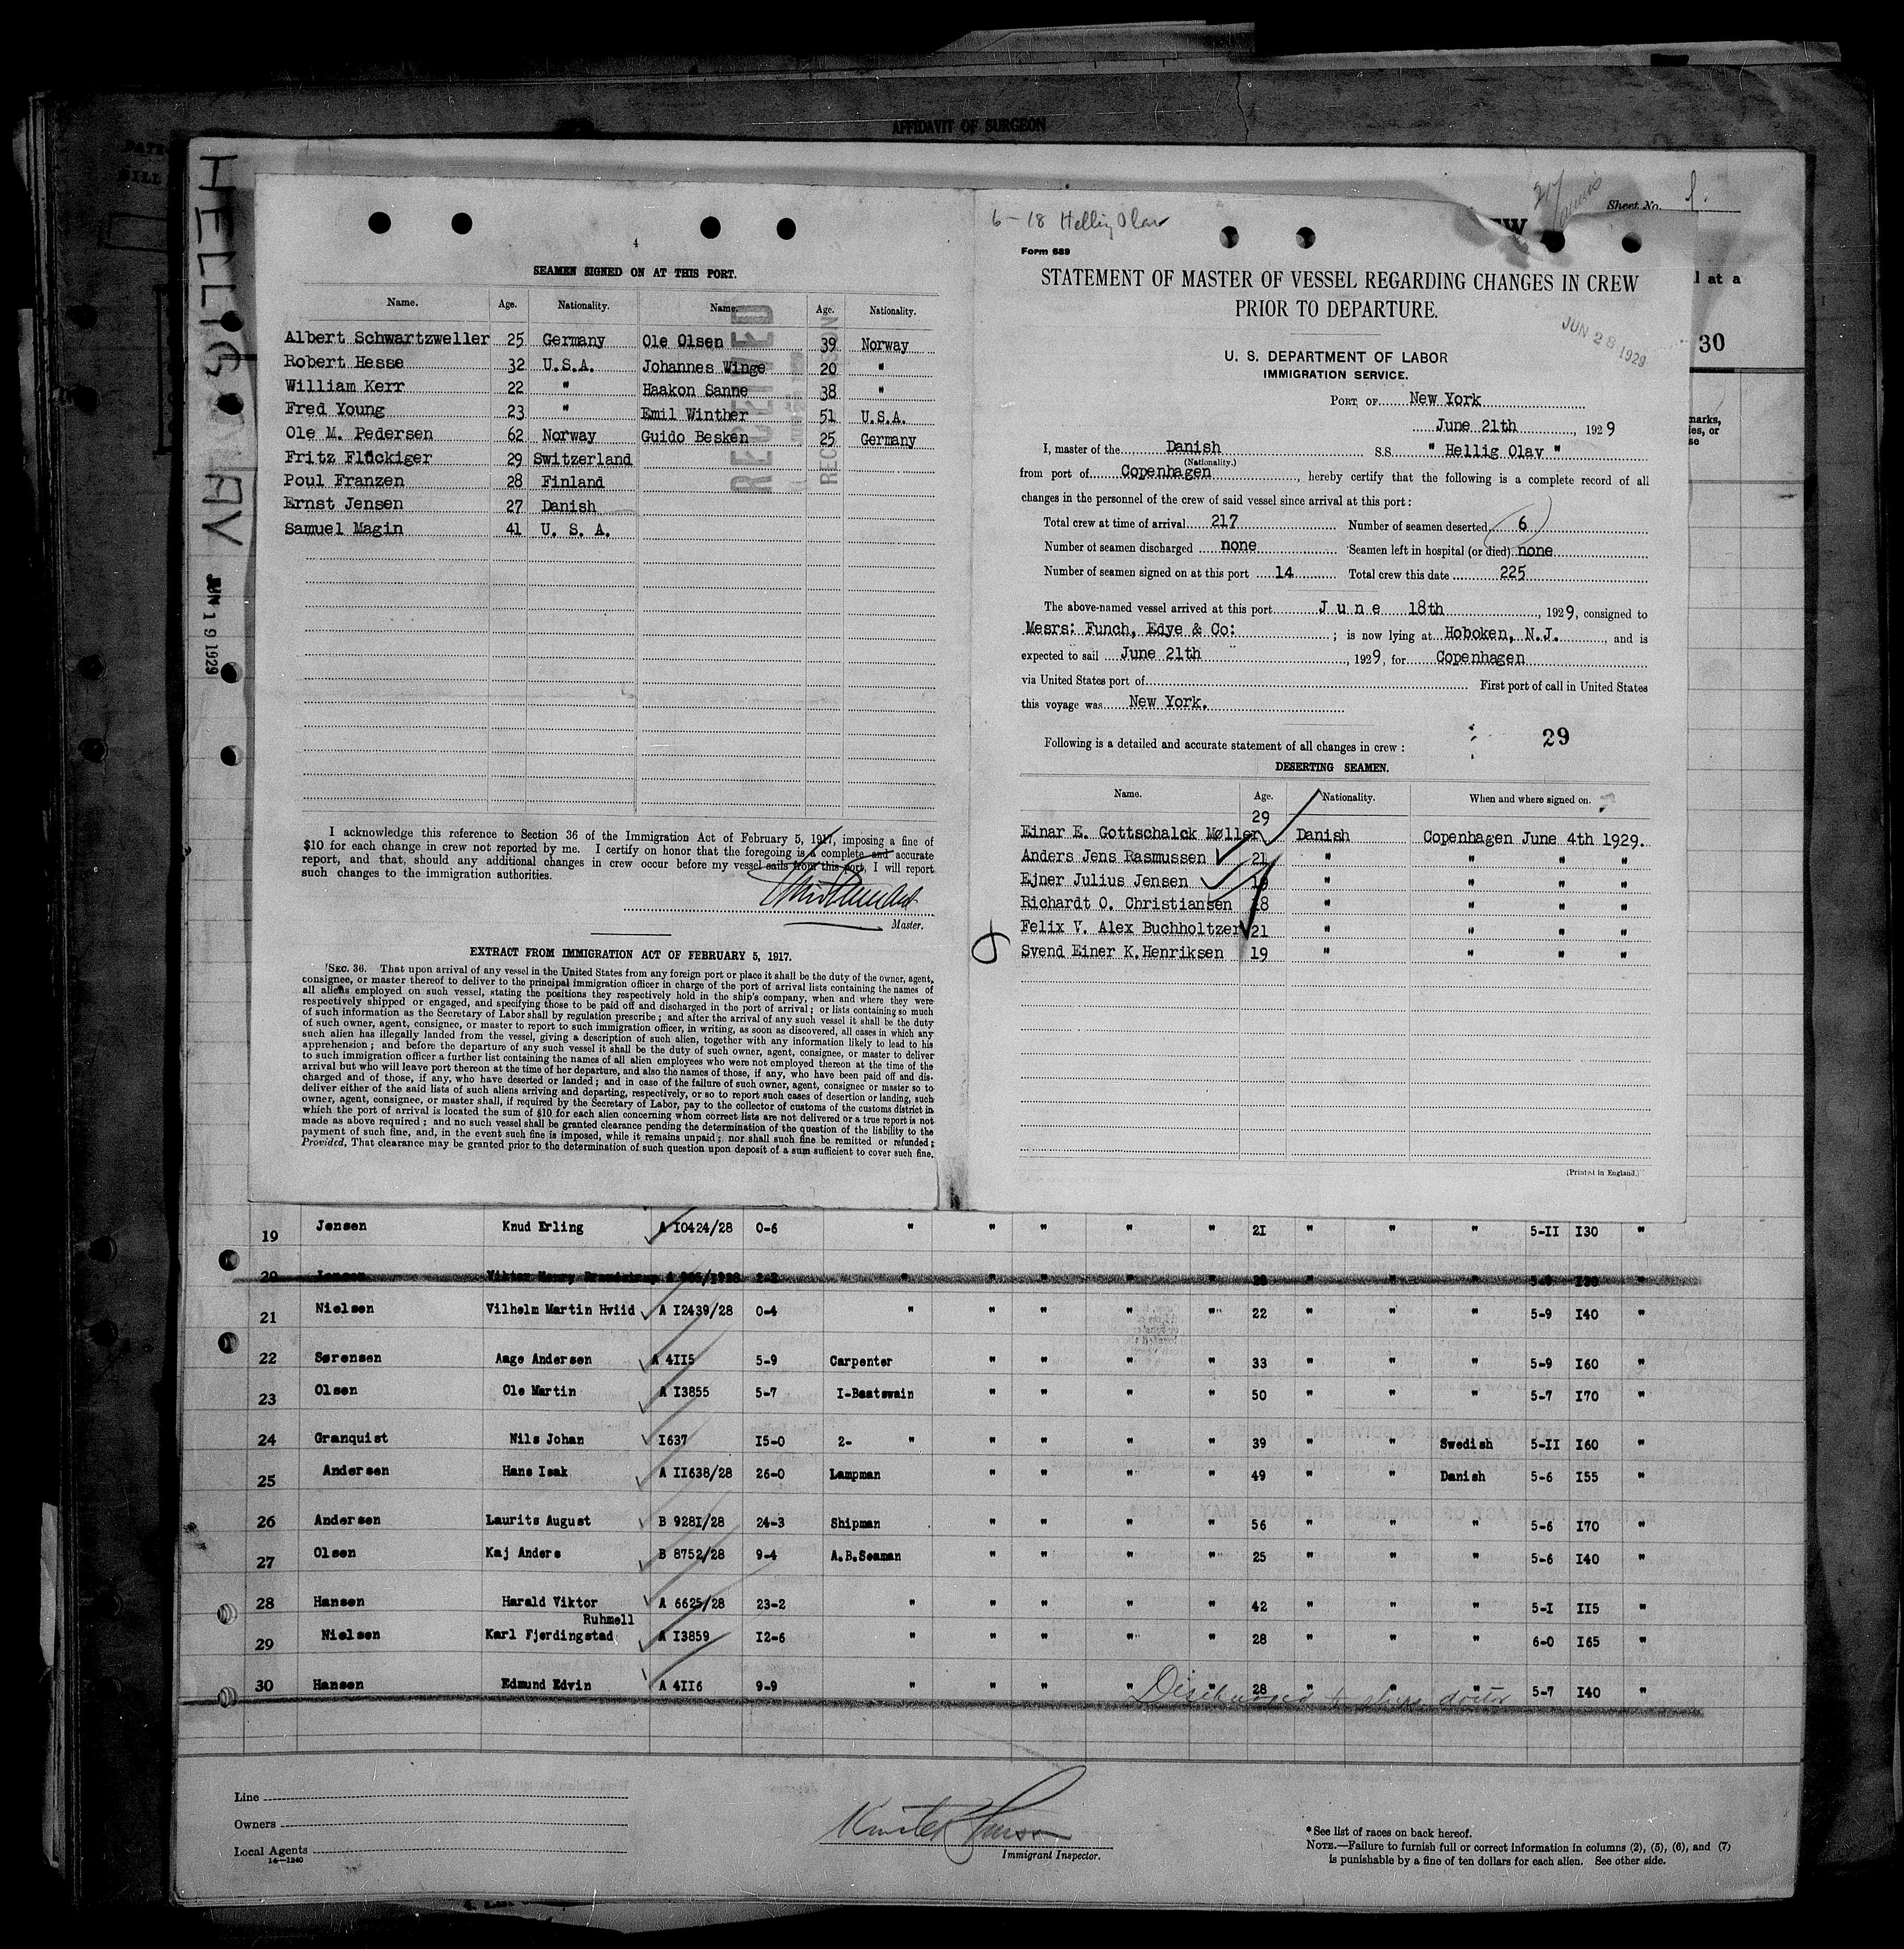 AFFIDAVIT OF SURGEON
HELLIG OLAV
JUN 19 1929
Sheet No. 1.
4
SEAMEN SIGNED ON AT THIS PORT.
Name. Age. Nationality. Name. Age. Nationality.
Albert Schwartzweller 25 Germany Ole Olsen 39 Norway
Robert Hesse 32 U.S.A. Johannes Winge 20 "
William Kerr 22 " Haakon Sanne 38 "
Fred Young 23 " Emil Winther 51 U.S.A.
Ole M. Pedersen 62 Norway Guido Besken 25 Germany
Fritz Flückiger 29 Switzerland
Poul Franzen 28 Finland
Ernst Jensen 27 Danish
Samuel Magin 41 U. S. A.
RECEIVED
I acknowledge this reference to Section 36 of the Immigration Act of February 5, 1917, imposing a fine of
$10 for each change in crew not reported by me. I certify on honor that the foregoing is a complete and accurate
report, and that, should any additional changes in crew occur before my vessel sails from this port, I will report
such changes to the immigration authorities.
Master.
EXTRACT FROM IMMIGRATION ACT OF FEBRUARY 5, 1917.
SEC. 36. That upon arrival of any vessel in the United States from any foreign port or place it shall be the duty of the owner, agent,
consignee, or master thereof to deliver to the principal immigration officer in charge of the port of arrival lists containing the names of
all aliens employed on such vessel, stating the positions they respectively hold in the ship's company, when and where they were
respectively shipped or engaged, and specifying those to be paid off and discharged in the port of arrival; or lists containing so much
of such information as the Secretary of Labor shall by regulation prescribe; and after the arrival of any such vessel it shall be the duty
of such owner, agent, consignee, or master to report to such immigration officer, in writing, as soon as discovered, all cases in which any
such alien has illegally landed from the vessel, giving a description of such alien, together with any information likely to lead to his
apprehension; and before the departure of any such vessel it shall be the duty of such owner, agent, consignee, or master to deliver
to such immigration officer a further list containing the names of all alien employees who were not employed thereon at the time of the
arrival but who will leave port thereon at the time of her departure, and also the names of those, if any, who have been paid off and dis-
charged and of those, if any, who have deserted or landed; and in case of the failure of such owner, agent, consignee or master so to
deliver either of the said lists of such aliens arriving and departing, respectively, or so to report such cases of desertion or landing, such
owner, agent, consignee, or master shall, if required by the Secretary of Labor, pay to the collector of customs of the customs district in
which the port of arrival is located the sum of $10 for each alien concerning whom correct lists are not delivered or a true report is not
made as above required; and no such vessel shall be granted clearance pending the determination of the question of the liability to the
payment of such fine, and, in the event such fine is imposed, while it remains unpaid; nor shall such fine be remitted or refunded:
Provided, That clearance may be granted prior to the determination of such question upon deposit of a sum sufficient to cover such fine.
6-18 Hellig Olav
Form 689
STATEMENT OF MASTER OF VESSEL REGARDING CHANGES IN CREW
PRIOR TO DEPARTURE.
JUN 28 1929
U. S. DEPARTMENT OF LABOR
IMMIGRATION SERVICE.
PORT OF New York
June 21th, 1929
I, master of the Danish S.S. " Hellig Olav "
(Nationality.)
from port of Copenhagen, hereby certify that the following is a complete record of all
changes in the personnel of the crew of said vessel since arrival at this port:
Total crew at time of arrival 217 Number of seamen deserted 6
Number of seamen discharged none Seamen left in hospital (or died) none
Number of seamen signed on at this port 14 Total crew this date 225
The above-named vessel arrived at this port June 18th, 1929, consigned to
Mesrs: Funch, Edye & Co: ; is now lying at Hoboken, N.J., and is
expected to sail June 21th, 1929, for Copenhagen
via United States port of First port of call in United States
this voyage was New York.
29
Following is a detailed and accurate statement of all changes in crew:
DESERTING SEAMEN.
Name. Age. Nationality. When and where signed on.
Einar E. Gottschalck Møller 29 Danish Copenhagen June 4th 1929.
Anders Jens Rasmussen 21 " " " "
Ejner Julius Jensen " " " "
Richardt O. Christiansen 18 " " " "
Felix V. Alex Buchholtzer 21 " " " "
Svend Einer K. Henriksen 19 " " " "
(Printed in England.)
l at a
30
marks,
19 Jensen Knud Erling A 10424/28 0-6 " " " " " 21 " " " 5-11 130 "
20 Jensen
21 Nielsen Vilhelm Martin Hviid A 12439/28 0-4 " " " " " 22 " " " 5-9 140 "
22 Sørensen Aage Andersen A 4115 5-9 Carpenter " " " " 33 " " " 5-9 160 "
23 Olsen Ole Martin A 13855 5-7 1-Baatswain " " " " 50 " " " 5-7 170 "
24 Granquist Nils Johan 1637 15-0 2- " " " " " 39 " " Swedish 5-11 160 "
25 Andersen Hans Isak A 11638/28 26-0 Lampman " " " " 49 " " Danish 5-6 155 "
26 Andersen Laurits August B 9281/28 24-3 Shipman " " " " 56 " " " 5-6 170 "
27 Olsen Kaj Anders B 8752/28 9-4 A.B.Seaman " " " " 25 " " " 5-6 140 "
28 Hansen Harald Viktor A 6625/28 23-2 " " " " " 42 " " " 5-1 115 "
Ruhmell
29 Nielsen Karl Fjerdingstad A 13859 12-6 " " " " " 28 " " " 6-0 165 "
30 Hansen Edmund Edvin A 4116 9-9 " " " " " 28 " " " 5-7 140 "
Discharged ships doctor
Line
Owners
Local Agents
14-1240
Immigrant Inspector.
*See list of races on back hereof.
NOTE.—Failure to furnish full or correct information in columns (2), (5), (6), and (7)
is punishable by a fine of ten dollars for each alien. See other side.